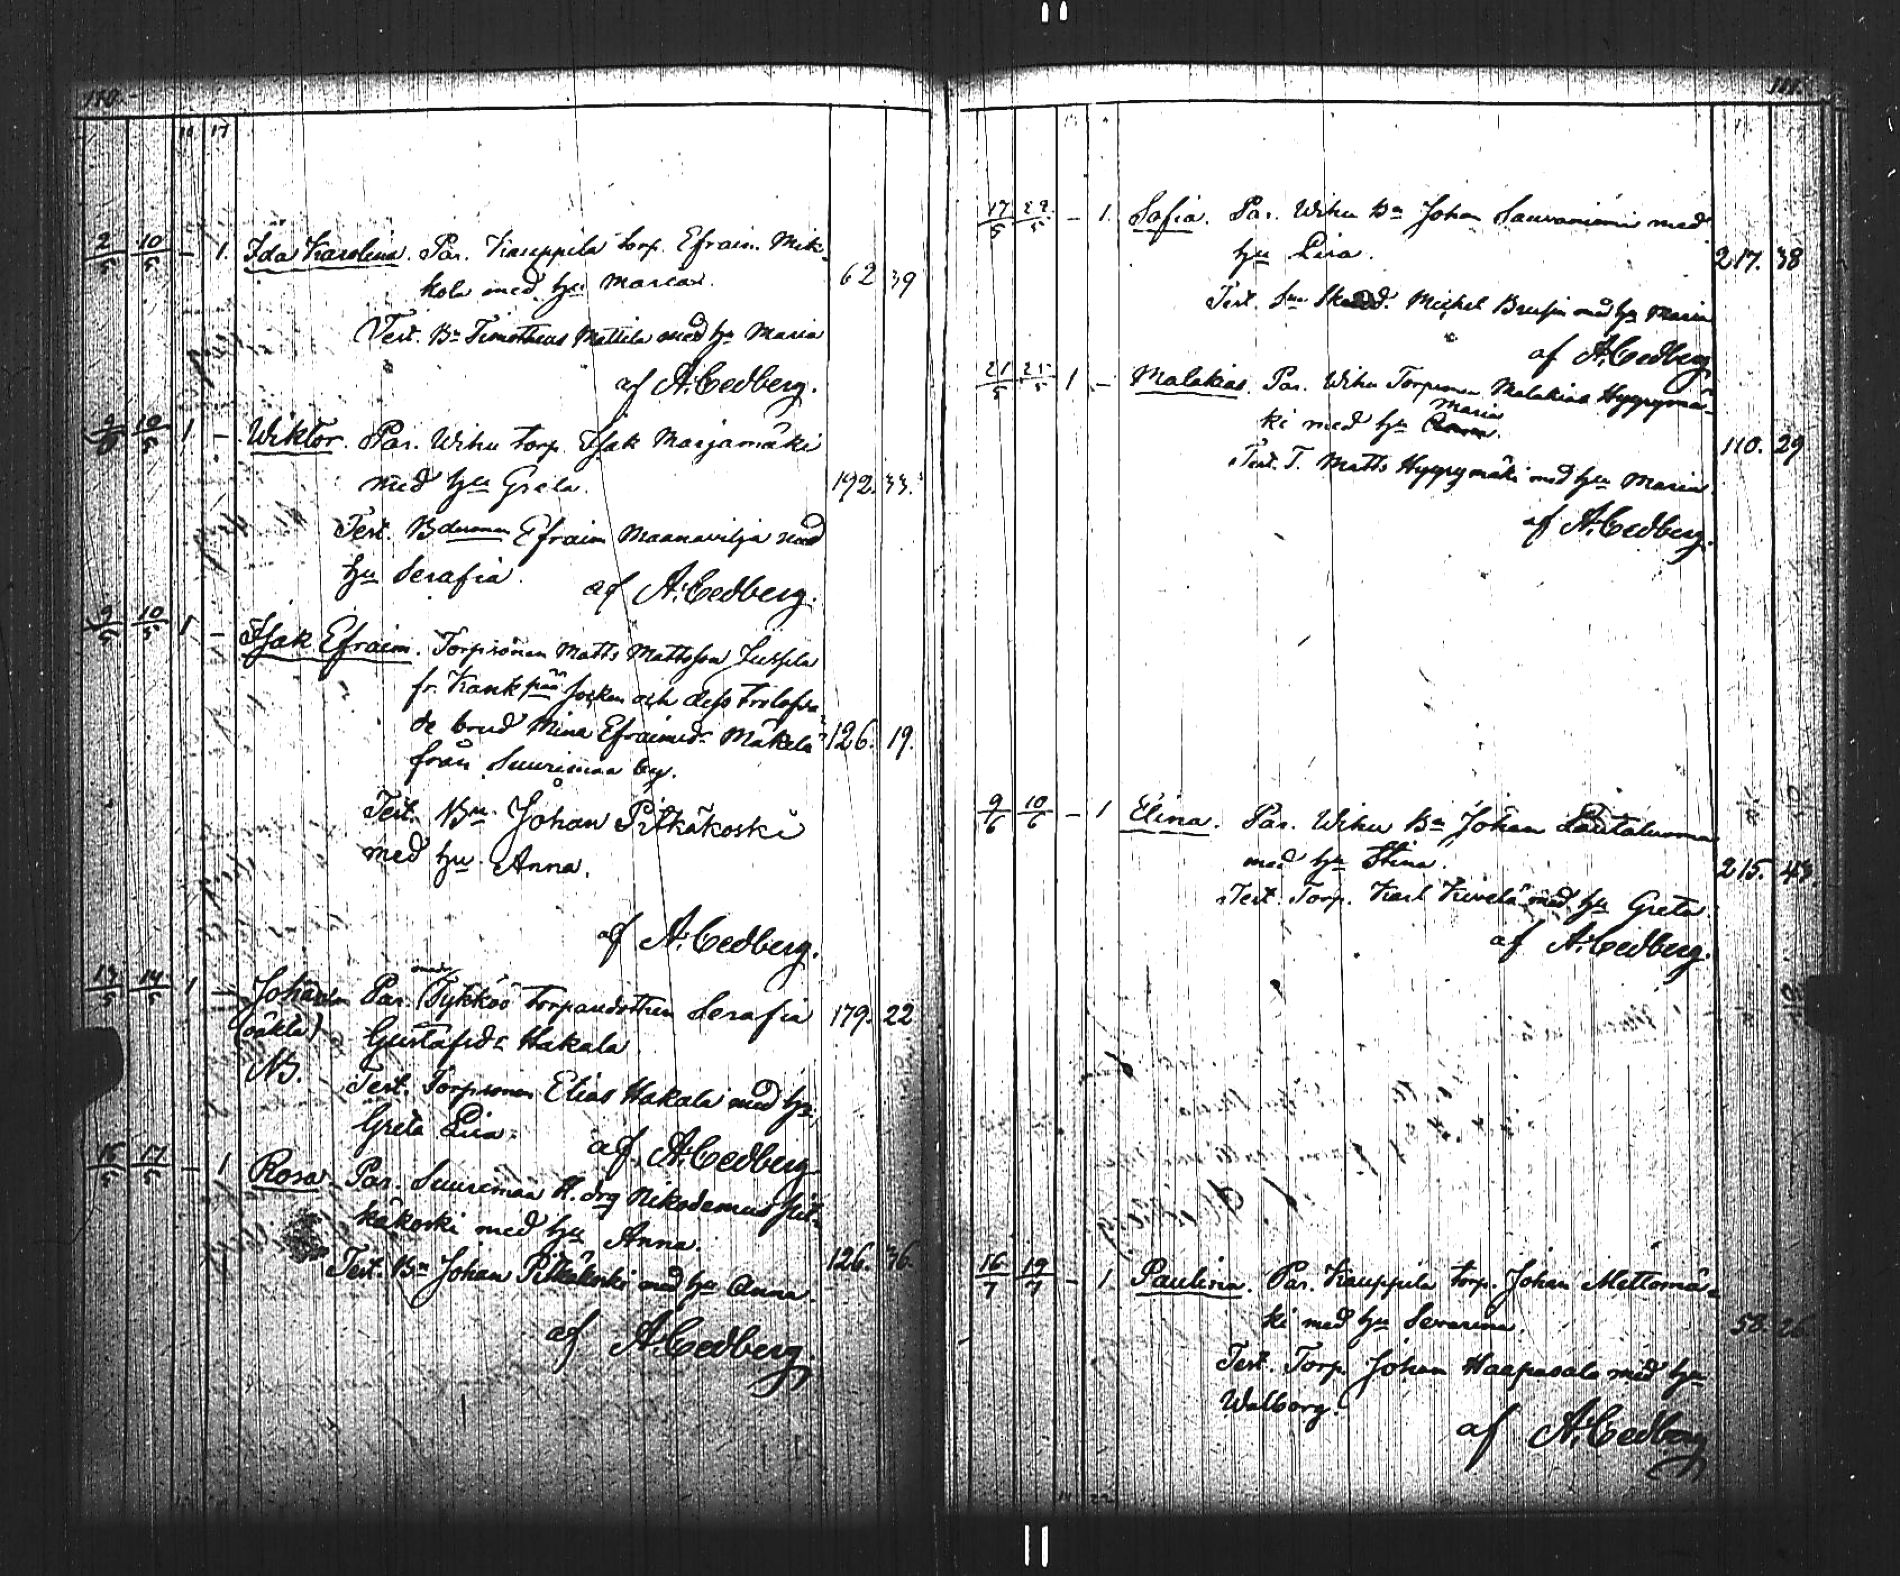 180.
16 17
2/5 10/5 - 1. Ida Karolina. Par. Kauppila torp. Efraim Mik-
kola med hu Maria. 62 39
Test. Bn Timotheus Mattila med hu Maria
af A. Cedberg.
10/5 1 - Wiktor. Par. Wihu torp. Isak Marjamäki
med hu Greta. 192. 33.
Test. Bdeman Efraim Maanavilja med
hu Serafia. af A. Cedberg.
9/5 10/5 1 - Isak Efraim. Torpsonen Matts Mattsson
fr. Kankpää socken och dess trolofva
de brud Mina Efraimsdr Mäkelä 126. 19.
från Suurimaa by.
Test. Bn. Johan Pitkäkoski
med hu. Anna.
af A. Cedberg.
13/5 14/5 1 - Johan Par. Tykköö torpandotter Serafia 179. 22
(oäkta) Gustafsdr Hakala
NB. Test. Torpsonen Elias Hakala med hu
Greta Lisa. af A. Cedberg
16/5 17/5 - 1 Rosa Par. Suurimaa H. drg Nikodemus Pit-
käkoski med hu Anna.
Test. Bn Johan Pitkäkoski med hu Anna. 126. 36.
af A. Cedberg.
181.
17/5 22/5 - 1. Safia. Par. Wihu Bn Johan Sauvaniemi med
hu Lisa. 217. 38
Test. Michel Brusin med hu Maria
af A. Cedberg
21/5 21/5 1 - Malakias. Par. Wihu Torparen Malakias Hyyrymä-
Maria
ki med hu. 110. 29
Test. T. Matts Hyyrymäki med hu Maria.
af A. Cedberg.
9/6 10/6 - 1 Elina. Par. Wihu Bn Johan Lautaluoma
med hu Stina. 215. 43.
Test. Torp. Karl Kivelä med hu Greta.
af A. Cedberg.
16/7 19/7 - 1 Paulina. Par. Kauppila torp. Johan Mettomä-
ki med hu Severina. 58 26
Test. Torp. Johan Haapasalo med hu
Walborg.
af A. Cedberg